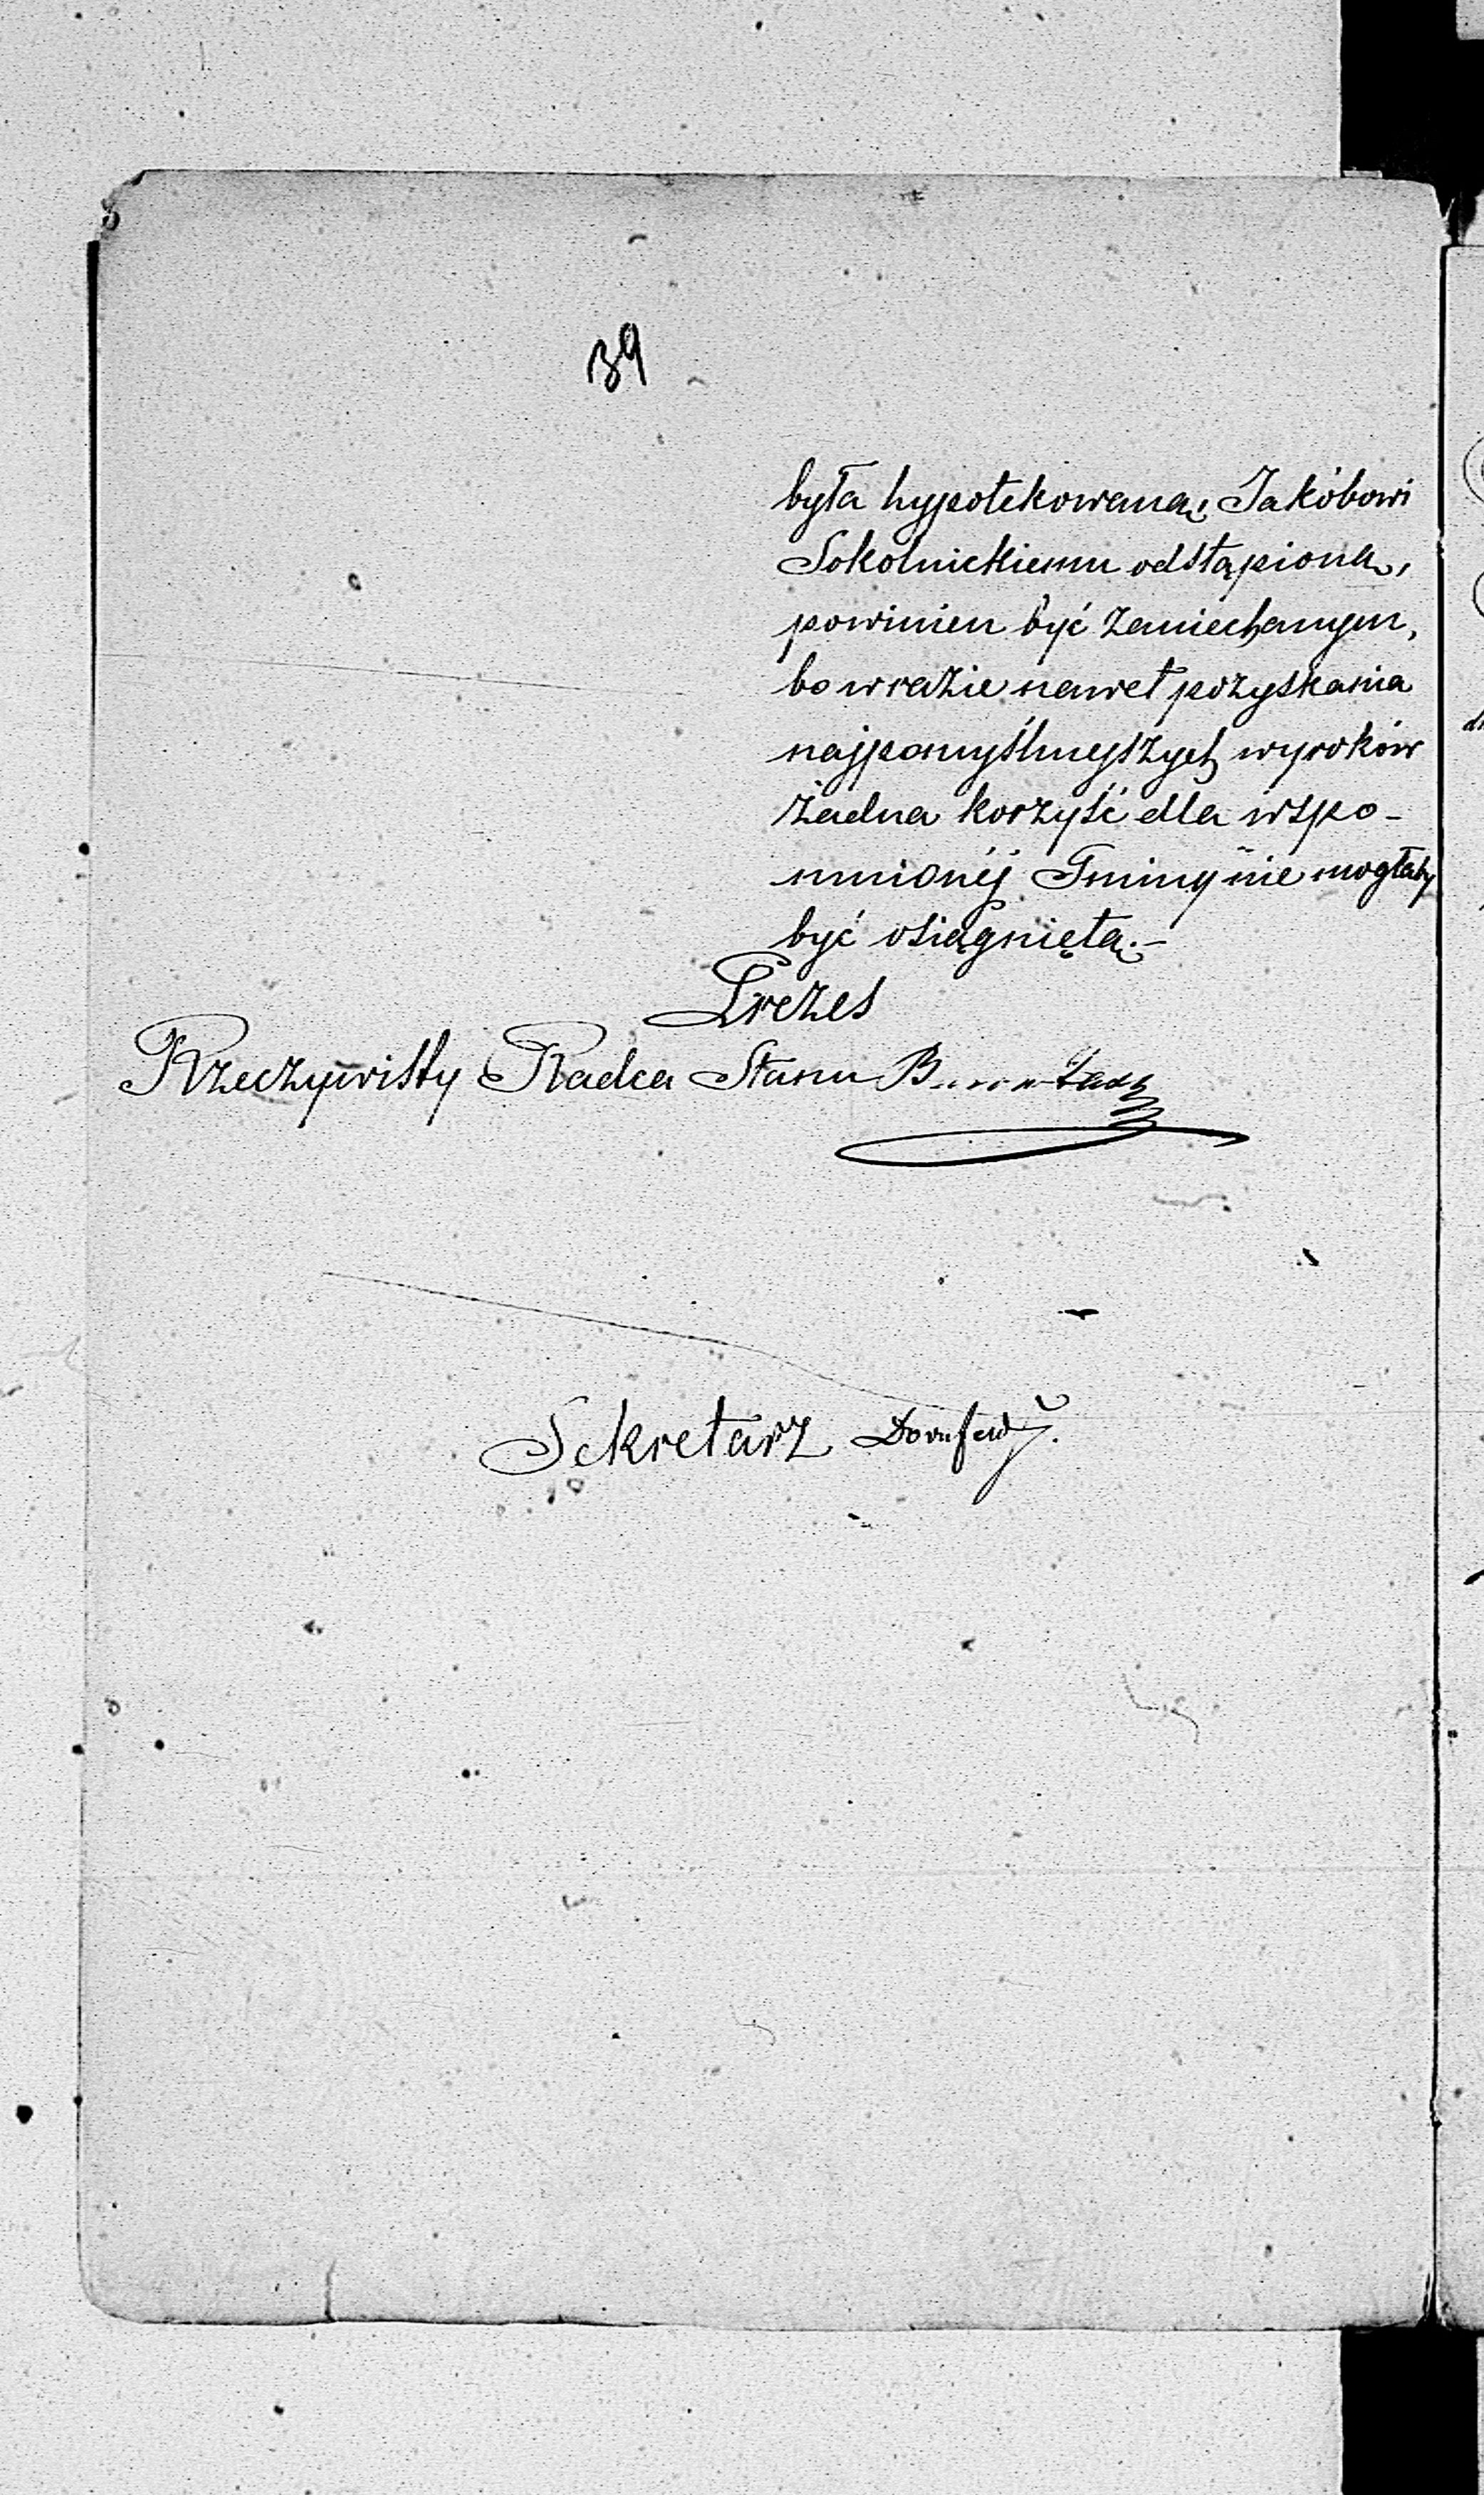 39
była hypotekowaną, Jakóbowi
Sokolnickiemu odstąpiona,
powinien być zaniechanym,
bo w razie nawet pozyskania
najpomyślnejszych wyroków
żadna korzyść dla wspo-
mnionéj Gminy nie mogłaby
być osiągniętą.-
Prezes
Rzeczywisty Radca Stanu
Sekretarz